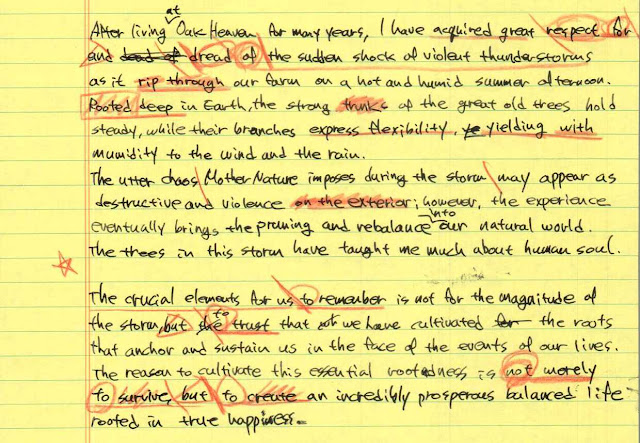 After living at Oak Heaven for many years, I have acquired great respect for
and dead of dread of the sudden shock of violent thunderstorms
as it rip through our farm on a hot and humid summer afternoon.
Rooted deep in Earth, the strong trunks of the great old trees hold
steady, while their branches express flexibility, ye yielding with
mumidity to the wind and the rain.
The utter chaos Mother Nature imposes during the storm may appear as
destructive and violence on the exterior; however, the experience
eventually brings the pruning and rebalance into our natural world.
The trees in this storm have taught me much about human soul.
The crucial elements for us to remember is not for the magnitude of
the storm, but to trust that we have cultivated for the roots
that anchor and sustain us in the face of the events of our lives.
The reason to cultivate this essential rootedness is not merely
to survive, but to create an incredibly prosperous balanced life
rooted in true happiness.